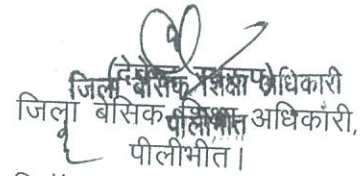 (देवेन्द्र स्वरूप)
जिला बेसिक शिक्षा अधिकारी
जिला बेसिक शिक्षा अधिकारी,
पीलीभीत
पीलीभीत।